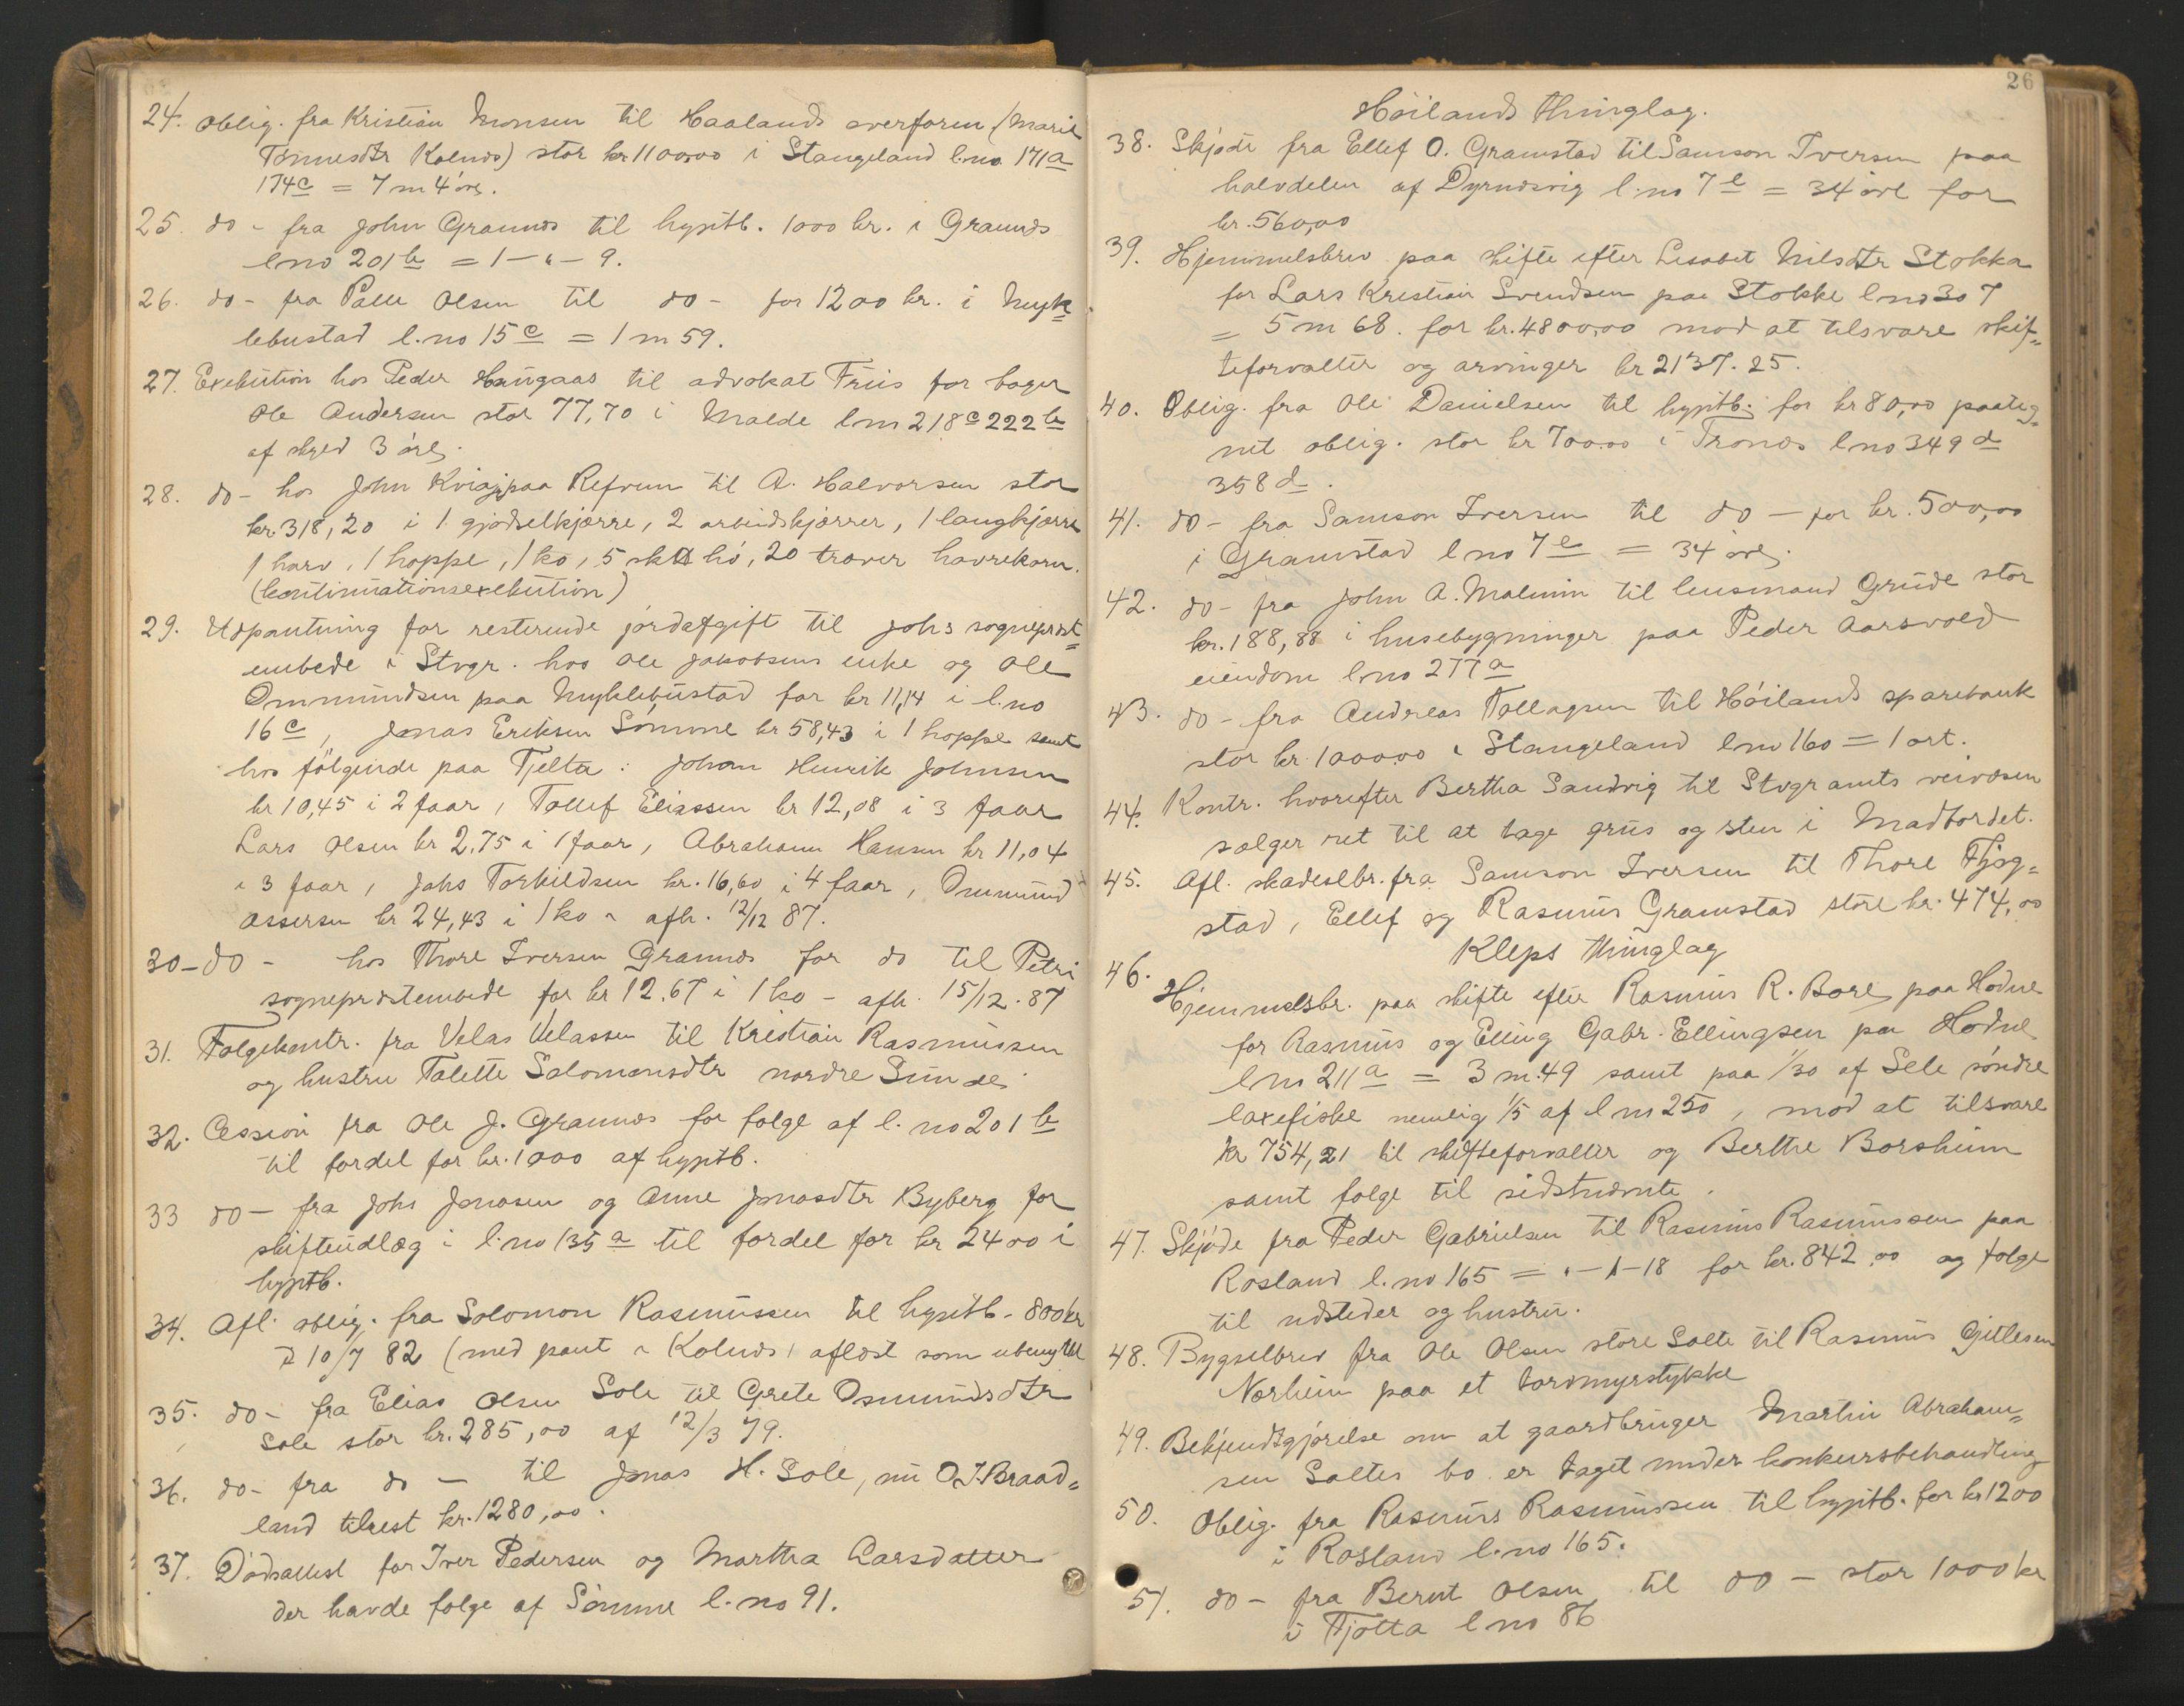 24. Oblig. fra Kristian Monsen til Haalands overform. (Marie
Tønnesdtr Kolnes) stor kr 1100,00 i Stangeland l.no 171a
174c = 7 m 4 øre.
25. do - fra John Graunes til hyptb. 1000 kr. i Graunes
l no 201b = 1 - " - 9.
26. do - fra Palle Olsen til do - for 1200 kr. i Myk=
lebustad l.no 15c = 1 m 59.
27. Exekution hos Peder Haugaas til advokat Friis for bager
Ole Andersen stor 77,70 i Malde l no 218c 222b
af skyld 3 øre.
28. do - hos John Kviaj paa Refveim til A. Halvorsen stor
kr. 318,20 i 1 gjødselkjærre, 2 arbeidskjærrer, 1 langkjærre
1 harv, 1 hoppe, 1 ko, 5 sk hø, 20 traver havrekorn.
(kontinuationsexekution)
29. Udpantning for resterende jordafgift til Johs sogneprest=
embede i Stvgr. hos Ole Jakobsens enke og Ole
Ommundsen paa Myklebustad for kr 11,14 i l.no
16c, Jonas Eriksen Sømme kr 58,43 i 1 hoppe samt
hos følgende paa Tjelta: Johan Henrik Johnsen
kr 10,45 i 2 faar, Tollef Eliassen kr 12,08 i 3 faar
Lars Olsen kr 2.75 i 1 faar, Abraham Hansen kr 11,04
i 3 faar, Johs Torkildsen kr. 16,60 i 4 faar, Ommund
Assersen kr 24,43 i 1 ko - afh. 12/12 87.
30 - do - hos Thore Iversen Graunes for do til Petri
sogneprestembede for kr 12.67 i 1 ko - afh. 15/12. 87
31. Følgekontr. fra Velas Velassen til Kristian Rasmussen
og hustru Talette Salomonsdtr nordre Sunde
32. Cession fra Ole J. Graunes for følge af l. no 201b
til fordel for kr. 1000 af hyptb.
33 do - fra Johs Jonasen og Anne Jonasdtr Byberg for
skifteudlæg i l. no 135a til fordel for kr 2400 i
hyptb.
34. Afl. oblig. fra Salomon Rasmussen til hyptb. 800 kr
d 10/7 82 (med pant i Kolnes, aflæst som ubenyttet
35. do - fra Elias Olsen Sole til Grete Osmundsdtr
Sole stor kr. 285,00 af 12/3 79.
36. do - fra do - til Jonas H. Sole, nu O.J. Braad=
land tilrest kr. 1280,00.
37. Dødsattest for Iver Pedersen og Martha Larsdatter
der havde følge af Sømme l. no 91.
26
Høilands thinglag.
38. Skjøde fra Ellef O. Gramstad til Samson Iversen paa
halvdelen af Dyrnesvig l.no 7e = 34 øre for
kr. 560,00
39. Hjemmelsbrev paa skifte efter Lisabet Nilsdtr Stokka
for Lars Kristian Svendsen paa Stokke l no 307
= 5 m 68. for kr. 4800,00 mod at tilsvare skif=
teforvalter og arvinger kr 2137.25.
40. Oblig. fra Ole Danielsen til hyptb. for kr 80,00 paateg=
net oblig. stor kr 700,00 i Tronæs l no 349d
358d.
41. do - fra Samson Iversen til do - for kr. 500,00
i Gramstad l no 7e = 34 øre.
42. do - fra John A. Malmin til lensmand Grude stor
kr. 188,88 i husebygninger paa Peder Aarsvold
eiendom l.no 277a
43. do - fra Andreas Tollagsen til Høilands sparebank
stor kr. 1000,00 i Stangeland l no 160 = 1 ort.
44. Kontr. hvorefter Bertha Sandvig til Stvgr amts veivæsen
sælger ret til at tage grus og sten i Madbordet.
45. Afl. skadeslbr. fra Samson Iversen til Thore Fjog=
stad, Ellef og Rasmus Gramstad store kr. 474,00
Kleps thinglag
46. Hjemmelsbr. paa skifte efter Rasmus R. Bore paa Hodne
for Rasmus og Elling Gabr. Ellingsen paa Hodne
l no 211a = 3 m.49 samt paa 1/30 af Sele søndre
laxefiske nemlig 1/5 af l no 250, mod at tilsvare
kr 754,21 til skifteforvalter og Berthe Borsheim
samt følge til sidstnævnte.
47. Skjøde fra Peder Gabrielsen til Rasmus Rasmussen paa
Rosland l. no 165 = " - 1 - 18 for kr. 842,00 og følge
til udsteder og hustru.
48. Bygselbrev fra Ole Olsen store Salte til Rasmus Gjetlesen
Nærheim paa et tordmyrstykke
49. Bekjendtgjørelse om at gaardbruger Martin Abraham=
sen Saltes bo er taget under konkursbehandling
50. Oblig. fra Rasmus Rasmussen til hyptb. for kr 1200
i Rosland l.no 165.
51. do - fra Bernt Olsen til do - stor 1000 kr
i Tjøtta l no 86